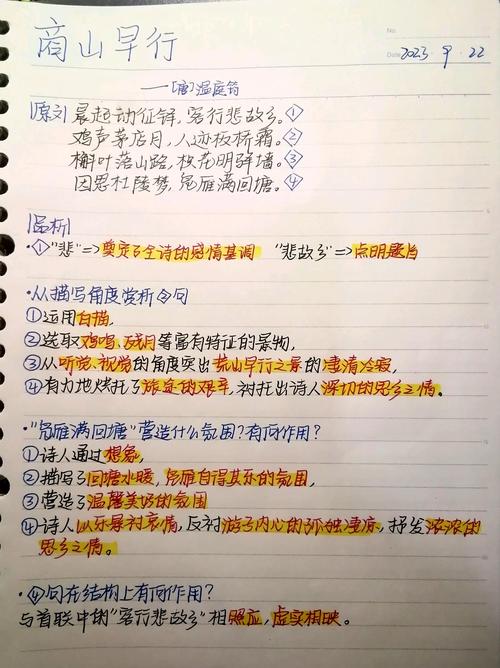 No.
Date 2023 9. 22
商山早行
——[唐]温庭筠
[原文] 晨起动征铎,客行悲故乡。①
鸡声茅店月,人迹板桥霜。②
槲叶落山路,枳花明驿墙。③
因思杜陵梦,凫雁满回塘。④
[赏析]
·①"悲"=>奠定了全诗的感情基调 "悲故乡"=>点明题旨
·从描写角度赏析②句
①运用白描,
②选取鸡鸣、残月等富有特征的景物,
③从听觉、视觉的角度突出荒山早行之景的凄清冷寂,
④有力地烘托了旅途的艰辛,衬托出诗人深切的思乡之情。
·"凫雁满回塘"营造什么氛围?有何作用?
①诗人通过想象,
②描写了回塘水暖,凫雁自得其乐的氛围,
③营造了温馨美好的氛围
④诗人以乐景衬哀情,反衬游子内心的孤独凄凉,抒发浓浓的
思乡之情。
·④句在结构上有何作用?
与首联中的"客行悲故乡"相照应,虚实相映。